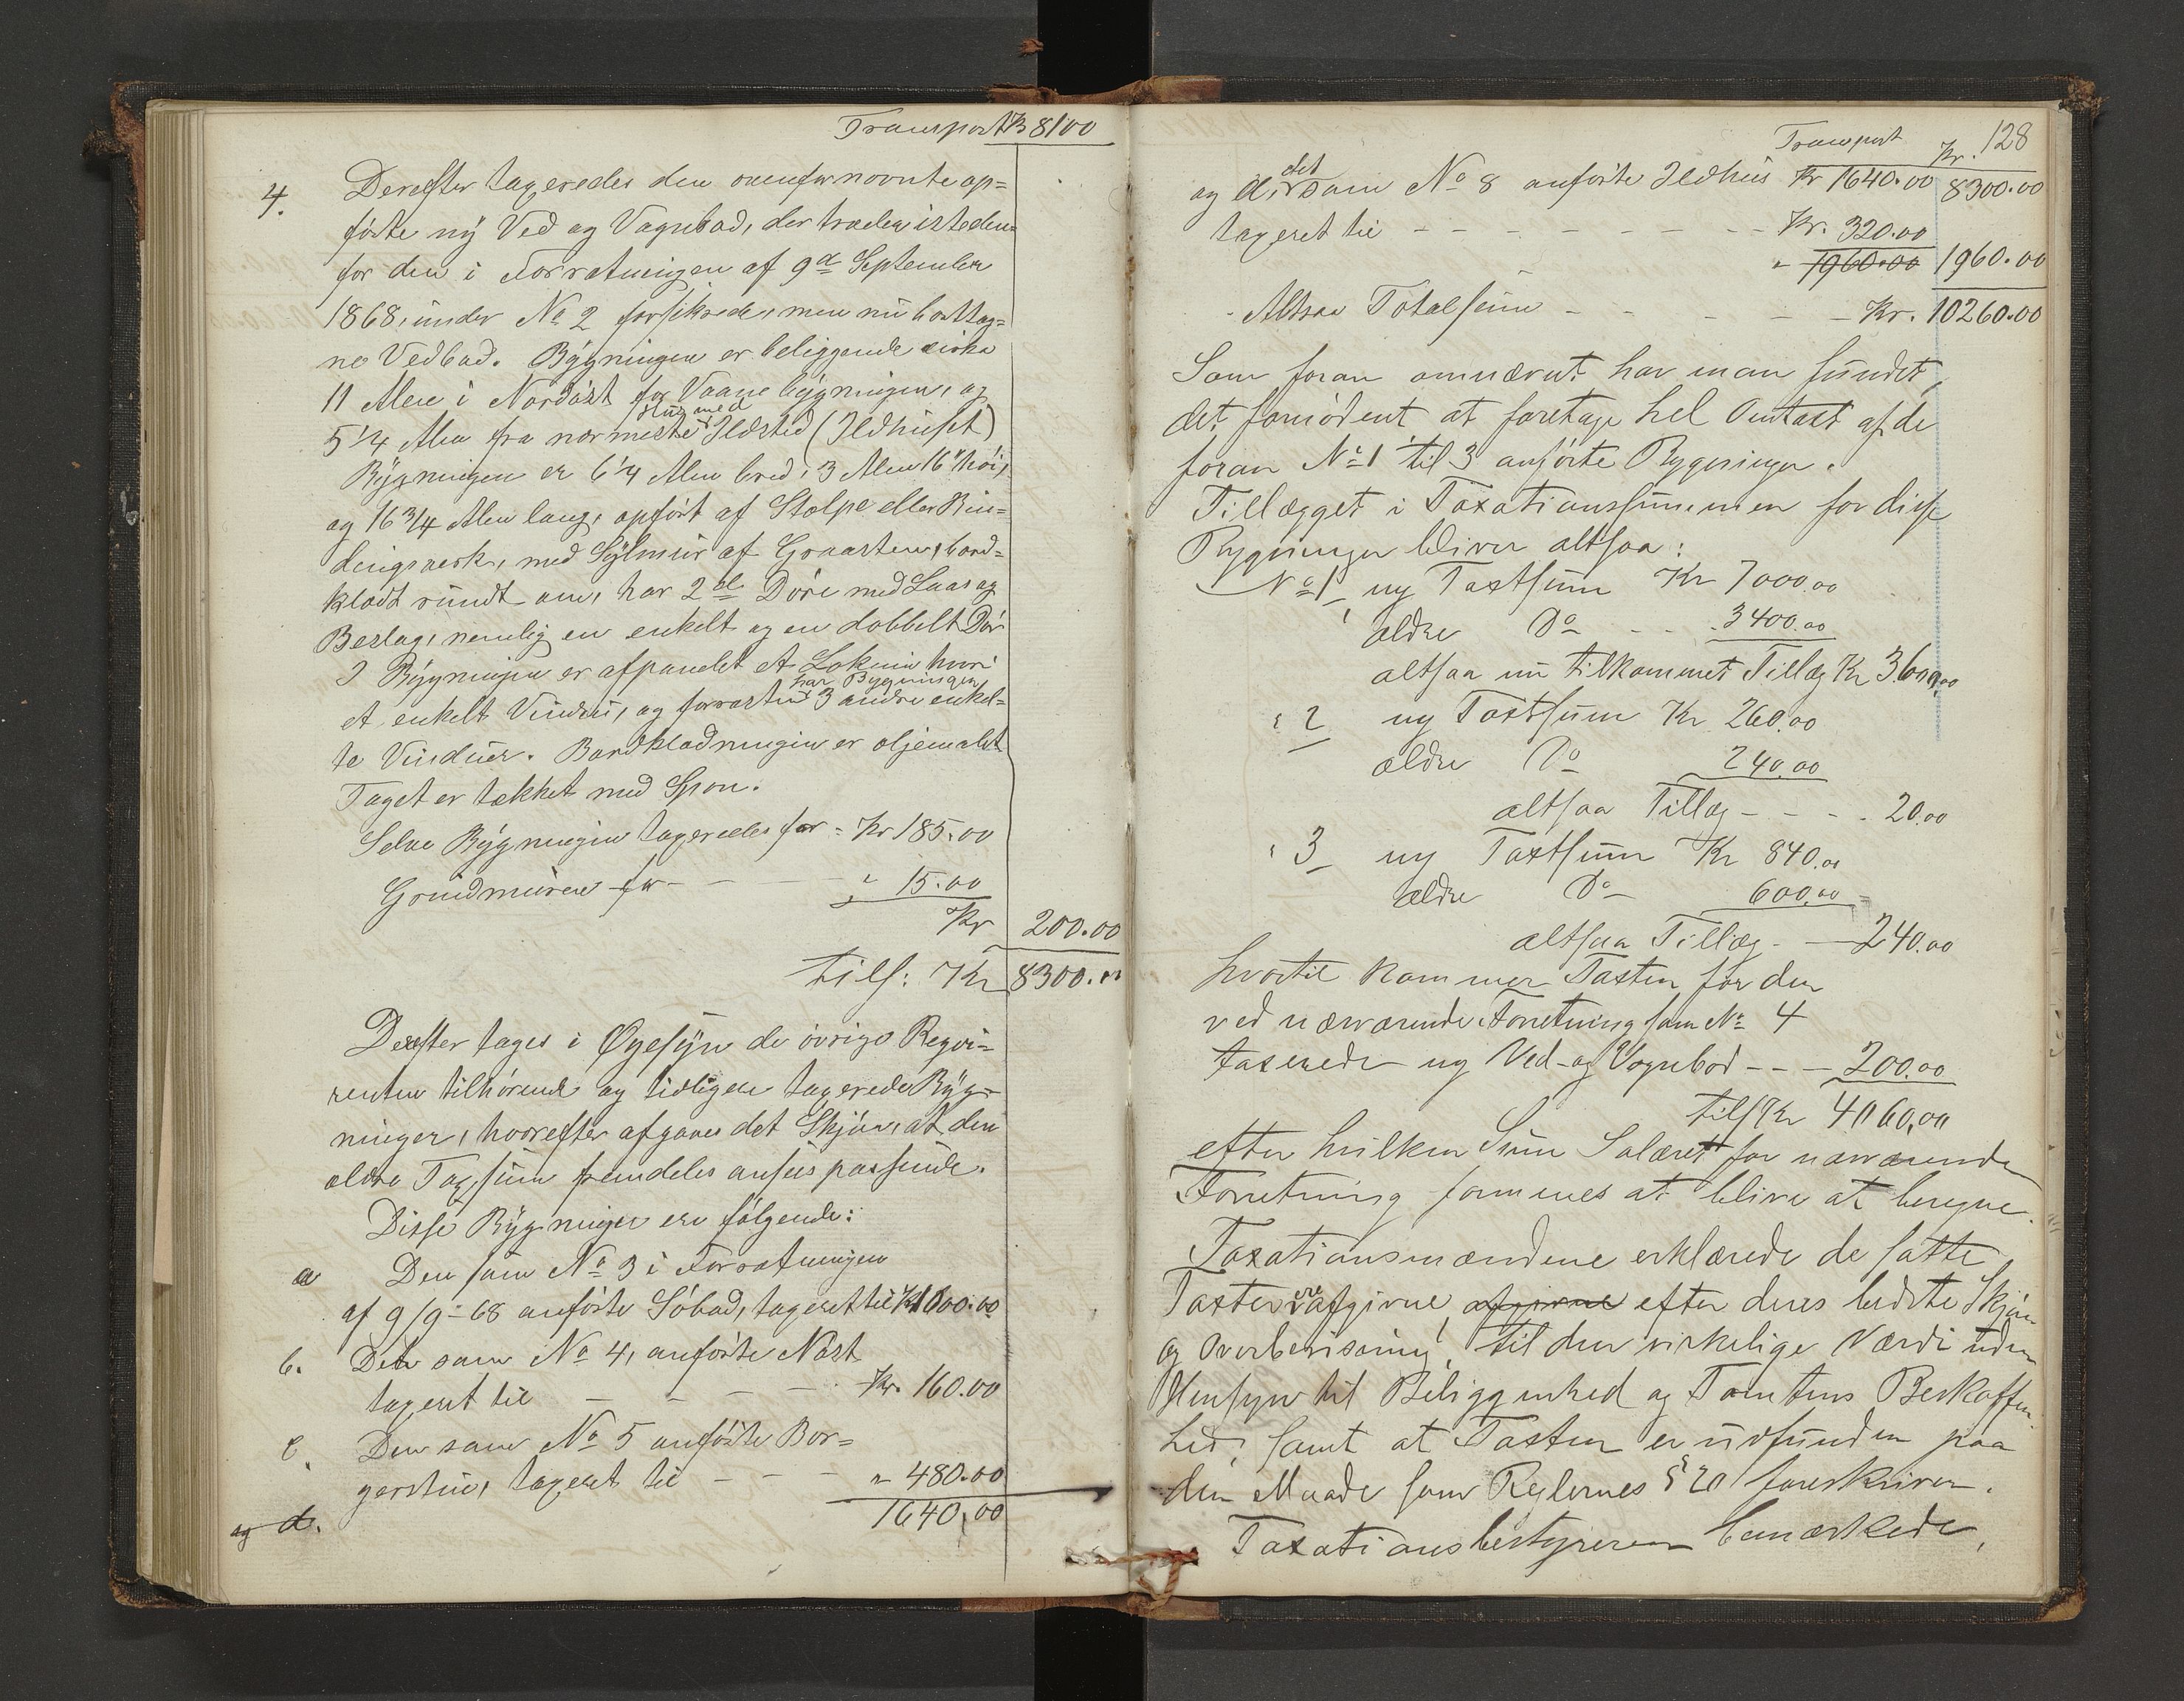 Transport Kr 8100
4. Derefter taxeredes den ovenfornævnte op=
førte ny Ved og Vognbod, der træder isteden=
for den i Forretningen af 9de September
1868, under No 2 forsikrede, men nu borttag=
ne Vedbod. Bygningen er beliggende cirka
11 Alen i Nordøst for Vaane bygningen, og
5 1/4 Alen fra nærmeste Hus med Ildsted (Ildhuset)
Bygningen er 6 1/4 Alen bred, 3 Alen 16" høi,
og 16 3/4 Alen lang, opført af Stolpe eller Bin=
dingsverk, med Sylmur af Graasten, bord=
klædt rundt om, har 2de Døre med Laas og
Beslag, nemlig en enkelt og en dobbelt Dør
I Bygningen er afpanelet et Lokum hvori
et enkelt Vindu, og forresten har Bygningen 3 andre enkel=
te Vinduer. Bordklædningen er oljemalet
Taget er tækket med Spon.
Selve Bygningen taxeredes for = Kr 185.00
Grundmuren for - - - " 15.00
Kr 200.00
tils: Kr 8300.00
Derefter toges i Øyesyn de øvrige Reqvi=
renten tilhørende og tidligere taxerede Byg=
ninger, hvorefter afgaves det Skjøn, at den
ældre Taxtsum fremdeles ansees passende.
Disse Bygninger ere følgende:
a Den som No 3 i Forretningen
af 9/9-68 anførte Søbod, taxeret til Kr 1000.00
b. Det som No 4, anførte Nøst
taxeret til - - - - Kr. 160.00
c. Den som No 5 anførte Bor=
gerstue, taxeret til - - - " 480.00
1640,00
og d.
128
Transport Kr.
og d, det som No 8 anførte Ildhus Kr 1640.00 8300.00
taxeret til - - - - - - - Kr. 320.00
" 1960.00 1960.00
Altsaa Totalsum - - - - - Kr. 10260.00
Som foran omnævnt har man fundet
det fornødent at foretage hel Omtaxt af de
foran No 1 til 3 anførte Bygninger.
Tillægget i Taxationssummen for disse
Bygninger bliver altsaa:
No 1 ny Taxtsum Kr 7000.00
ældre Do - - - 3400.00
altsaa nu tilkommet Tillæg Kr 3600,00
" 2 ny Taxtsum Kr 260.00
ældre Do 240.00
altsaa Tillæg - - - - 20.00
" 3 ny Taxtsum Kr 840.00
ældre Do 600.00
altsaa Tillæg - - 240.00
hvortil kommer Taxten for den
ved nærværende Forretning som No 4
taxerede ny Ved- og Vognbod - - - 200.00
tils Kr 4060,00
efter hvilken Sum Salæret for nærværende
Forretning formenes at blive at beregne.
Taxationsmændene erklærede de satte
Taxter ere afgivne afgivne efter deres bedste Skjøn
og Overbevisning, til den virkelige Værdi uden
Hensyn til Beliggenhed og Tomtens Beskaffen=
hed, samt at Taxten er udfunden paa
den Maade som Reglernes § 20 foreskriver.
Taxationsbestyreren bemærkede,